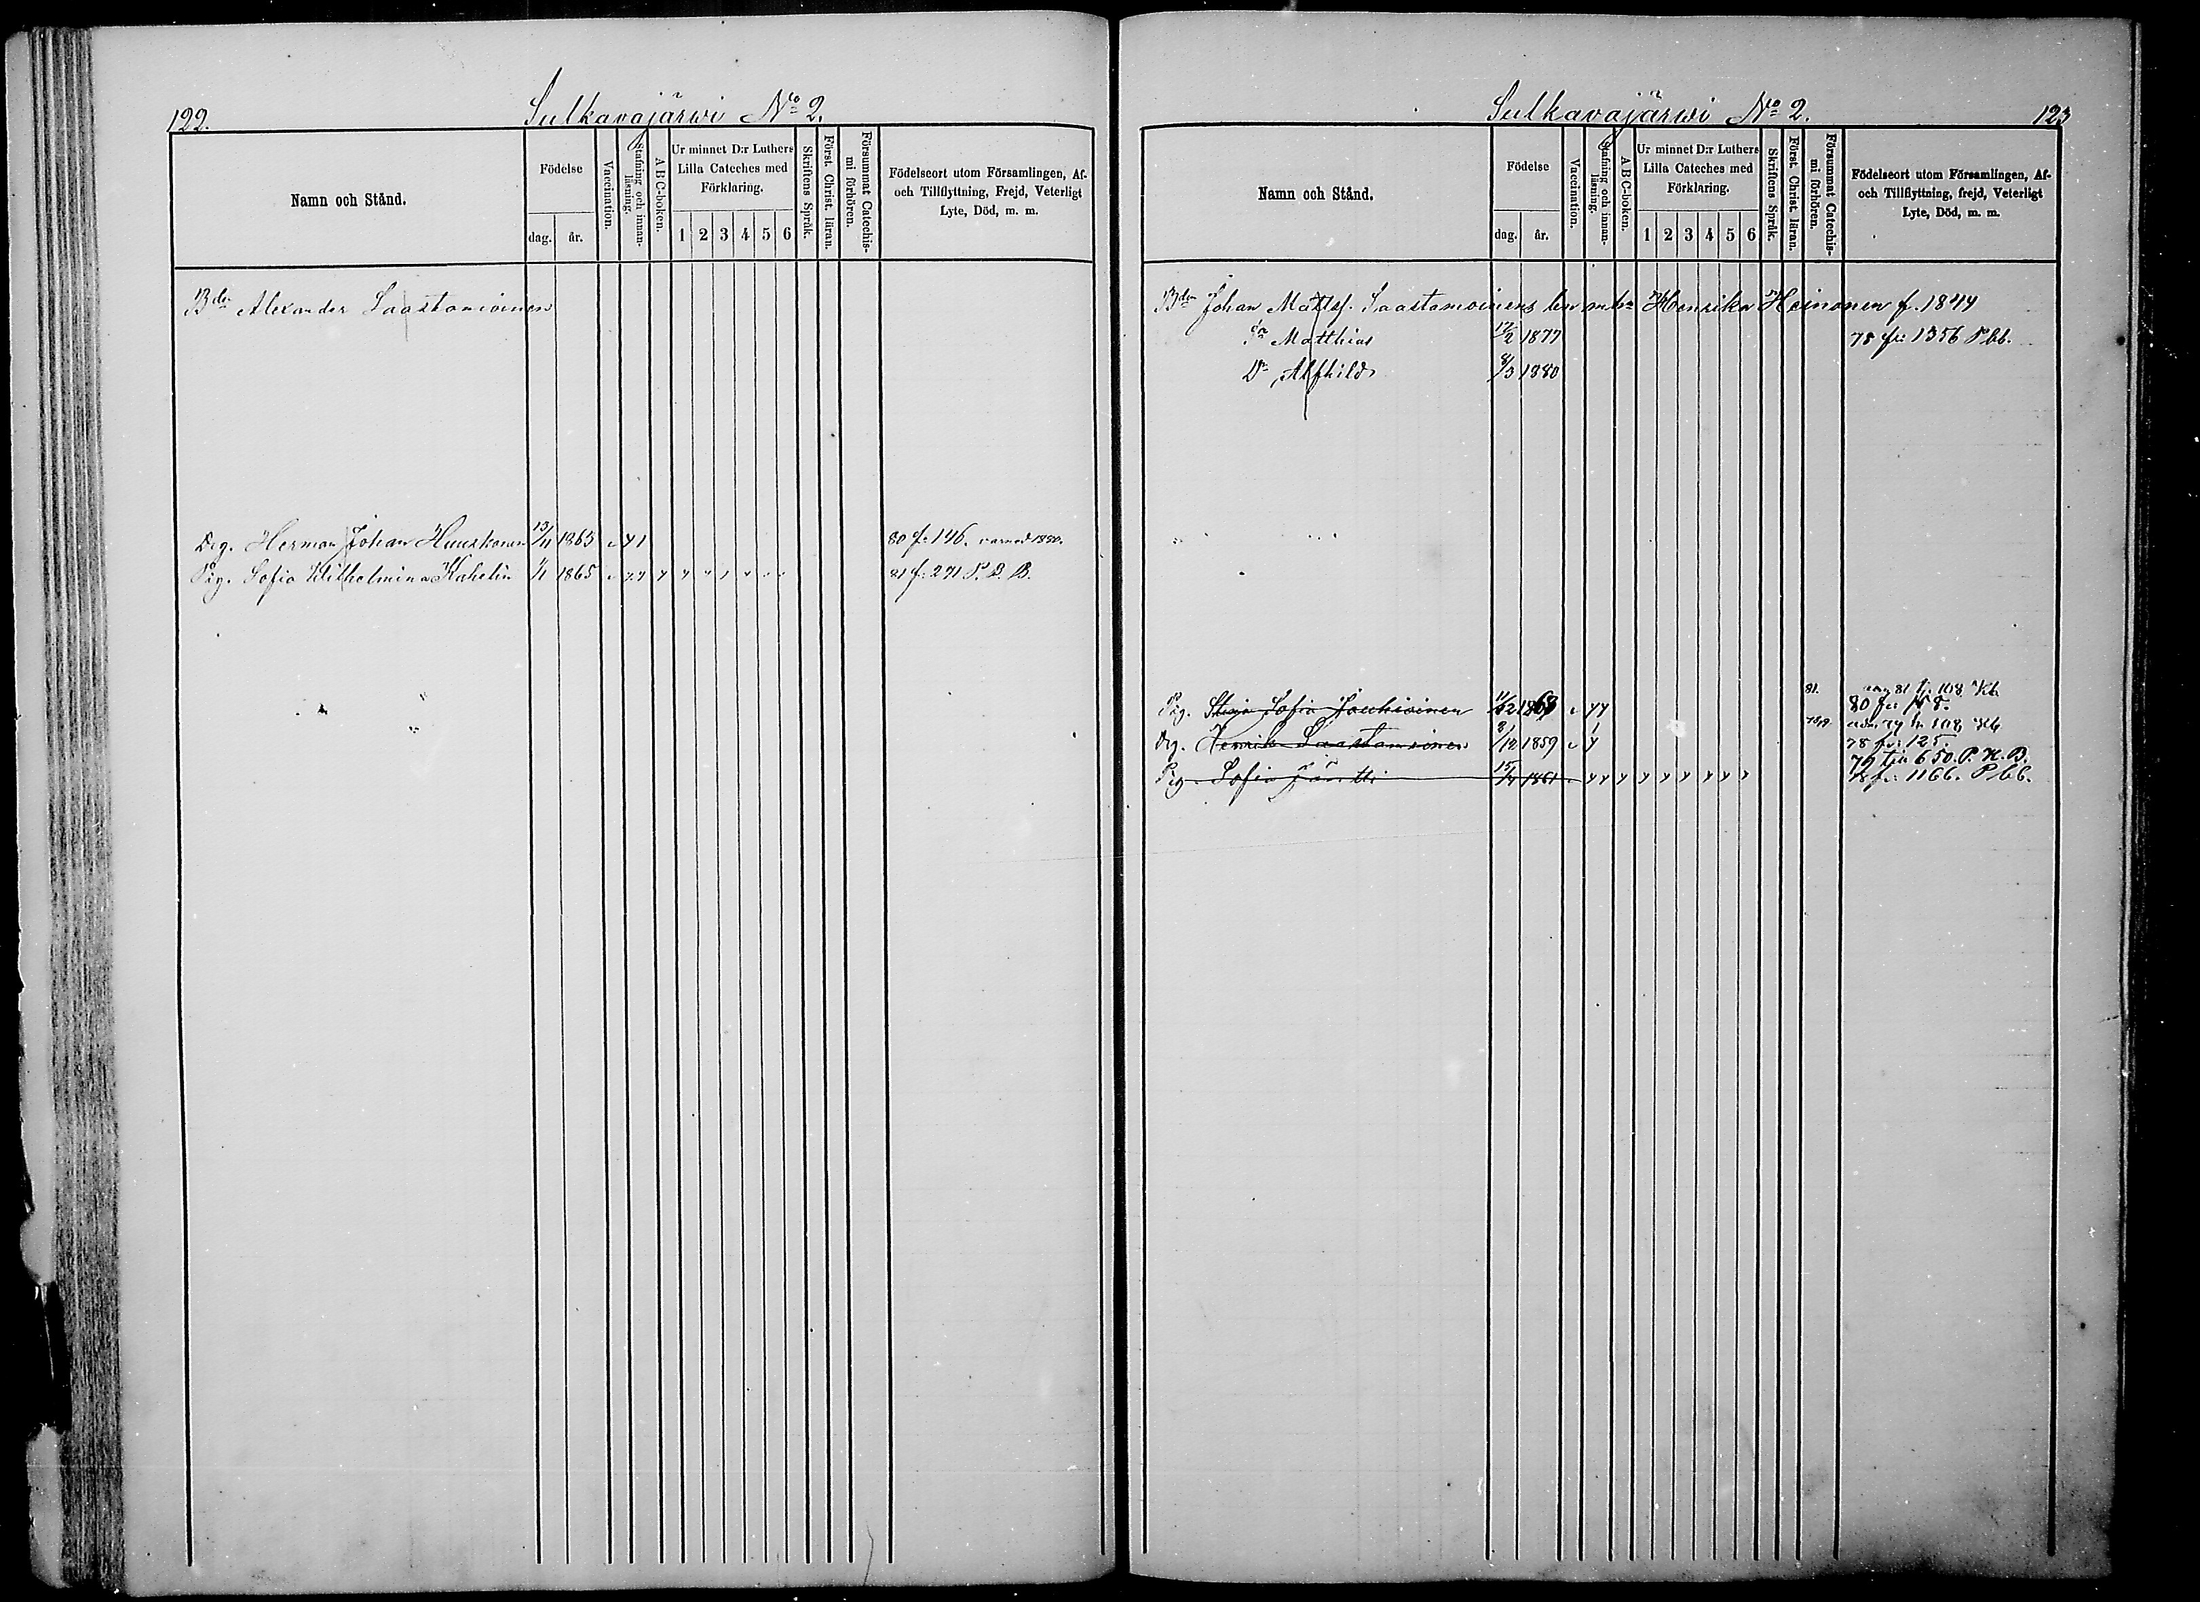 122.
Sulkavajärwi No 2.
Namn och Stånd.
Födelse
dag.
år.
Vaccination.
Stafning och innan-
läsning.
A B C-boken.
Ur minnet D:r Luthers
Lilla Cateches med
Förklaring.
1 2 3 4 5 6
Skriftens Språk.
Först. Christ. läran.
Försummat Catechis-
mi förhören.
Födelseort utom Församlingen, Af-
och Tillflyttning, Frejd, Veterligt
Lyte, Död, m. m.
Bdn Alexander Saastamoinen
Drg. Herman Johan Huuskonen 13/11 1863 80 fr. 146.
Pig. Sofia Wilhelmina Kahelin 1/1 1865 81 fr. 271 P. D. B.
Sulkavajärwi No 2.
123
Namn och Stånd.
Födelse
dag.
år.
Vaccination.
Stafning och innan-
läsning.
A B C-boken.
Ur minnet D:r Luthers
Lilla Cateches med
Förklaring.
1 2 3 4 5 6
Skriftens Språk.
Först. Christ. läran.
Försummat Catechis-
mi förhören.
Födelseort utom Församlingen, Af-
och Tillflyttning, frejd, Veterligt
Lyte, Död, m. m.
Bdn Johan Matts. Saastamoinens Henrika Heinonen f. 1844
Sn Matthias 17/2 1877 78 fr: 1356 Pbb.
Dr Alfhild 8/3 1880
81.
Pig. Sofia Jauhiainen 11/12 1863 80 fr.
Drg. Henrik Saastamoinen 3/12 1859 78 fr: 125.
79 till 650. P. K. B.
Pig. Sofia Jäntti 15/4 1861 78 fr. 1166. Pbb.